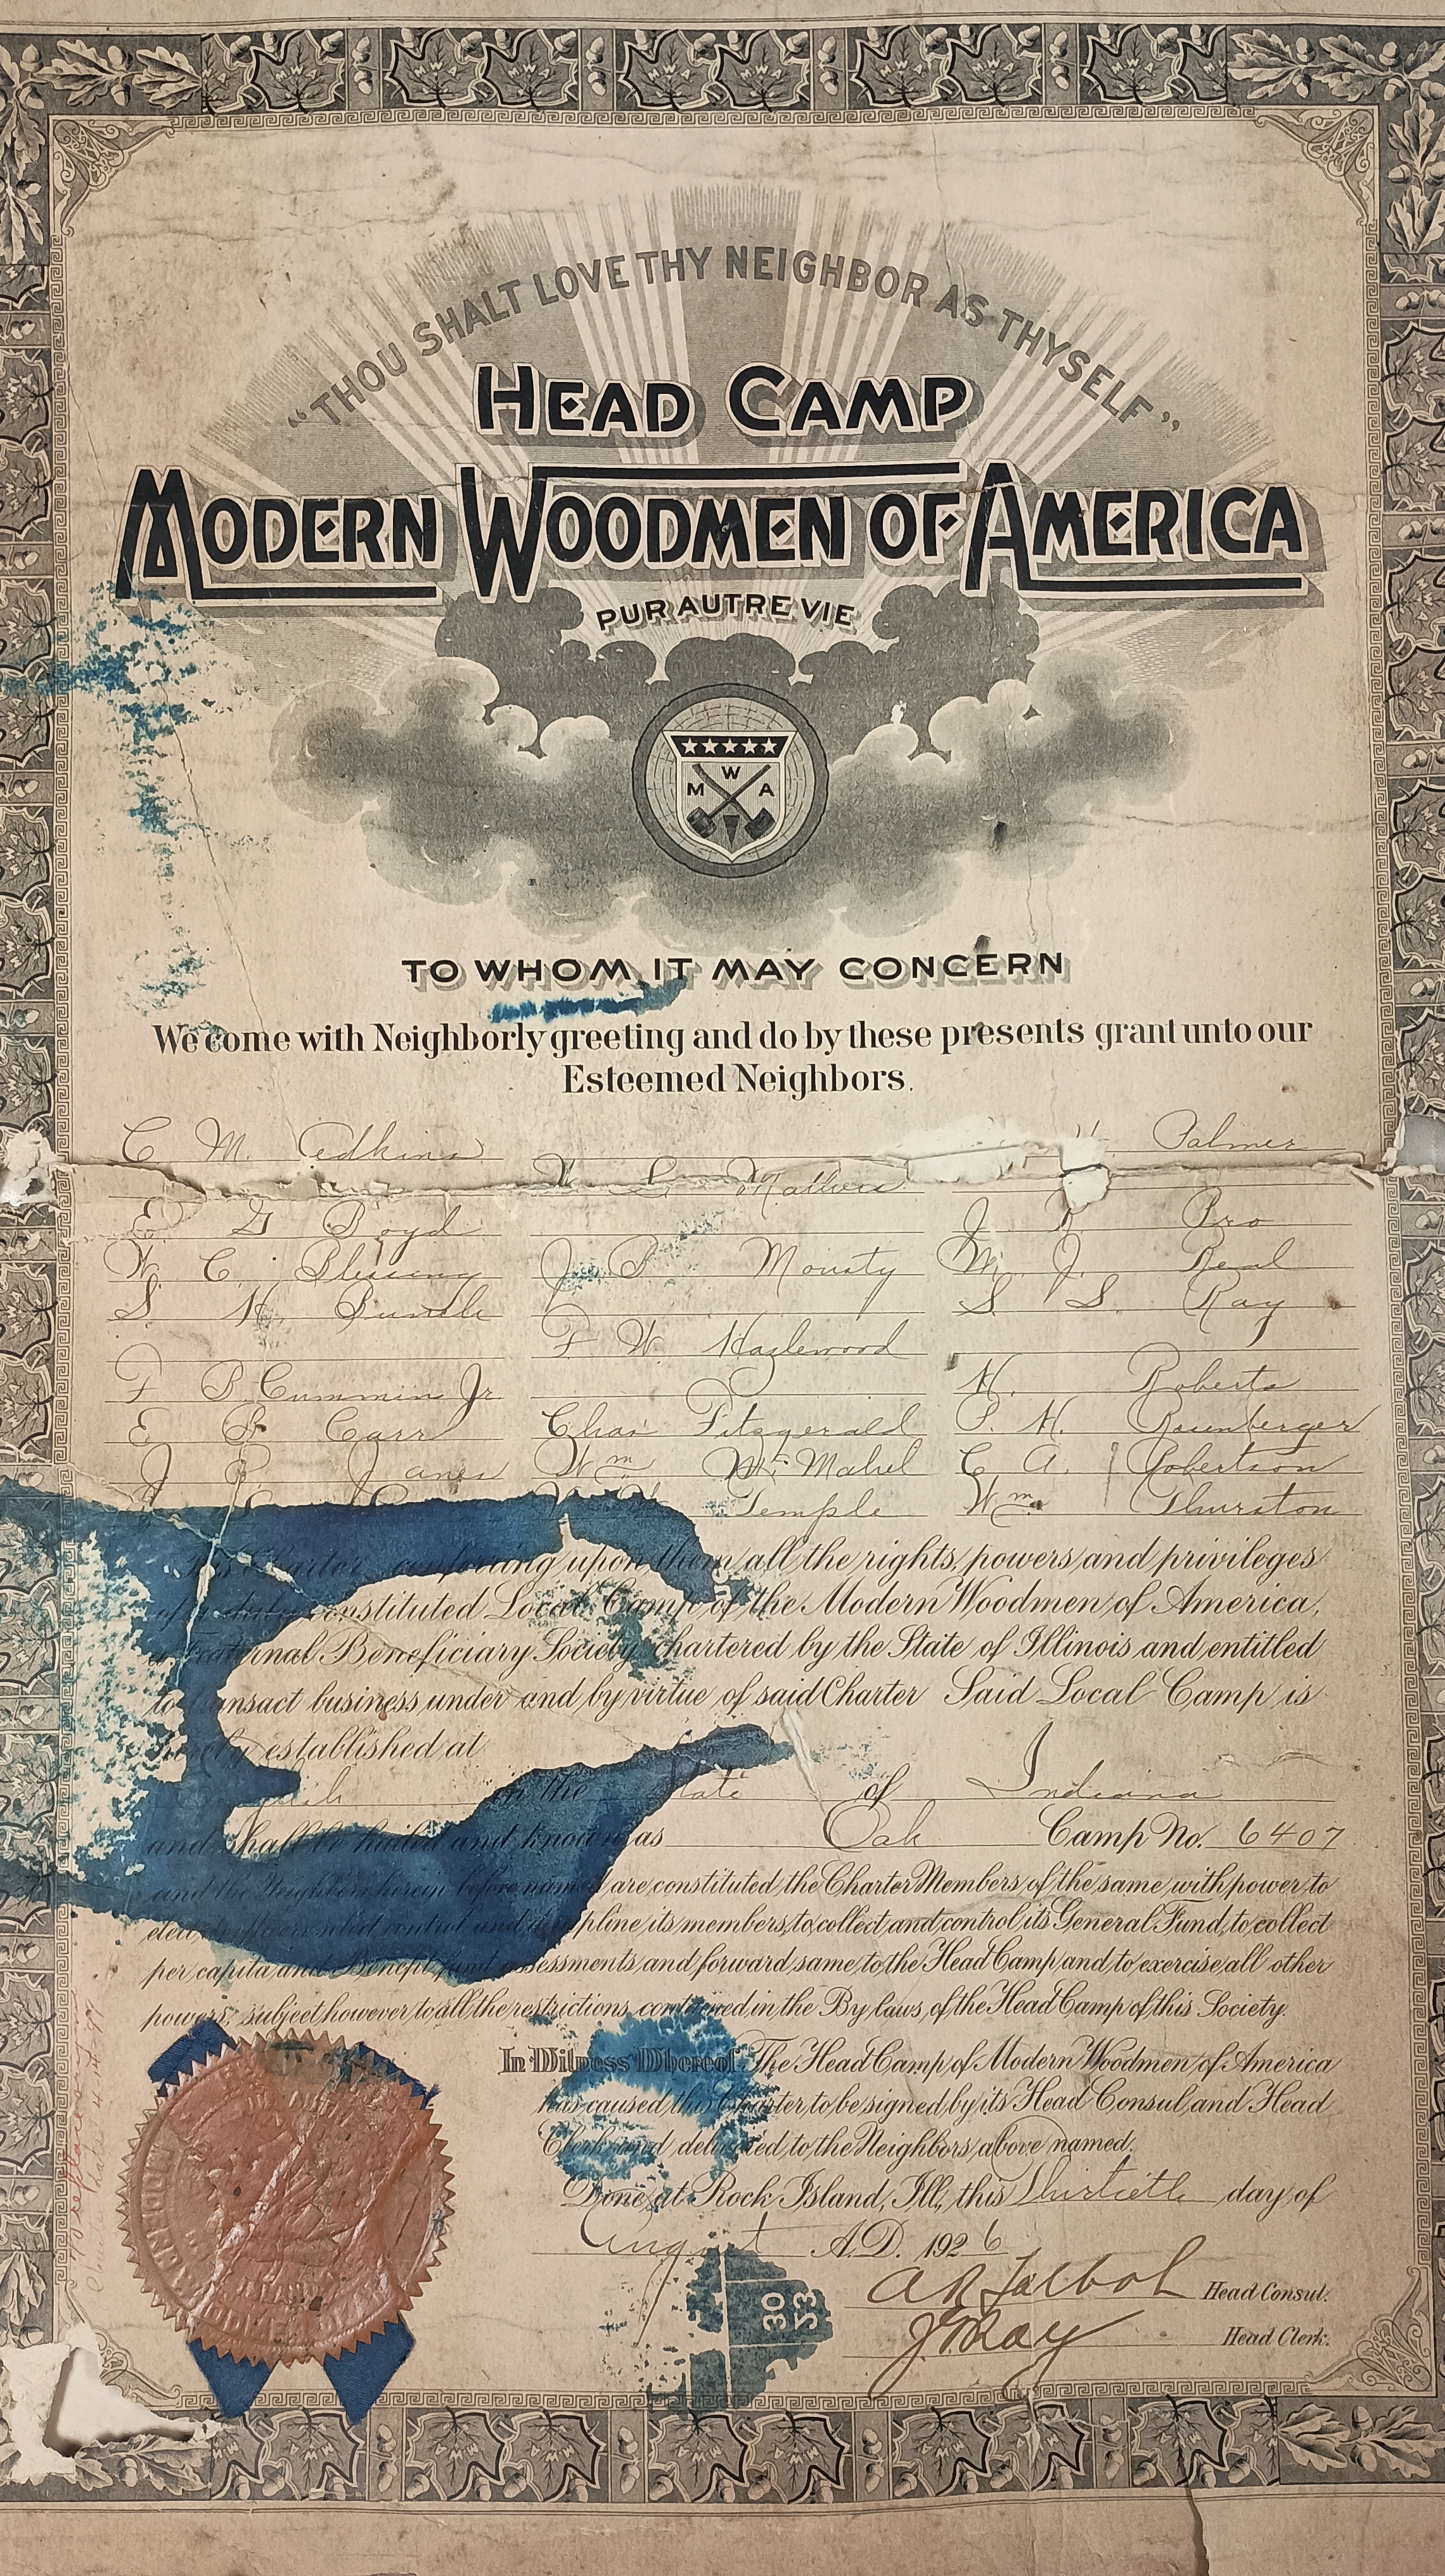 "THOU SHALT LOVE THY NEIGHBOR AS THYSELF"
HEAD CAMP
MODERN WOODMEN OF AMERICA
PUR AUTRE VIE
M W A
TO WHOM IT MAY CONCERN
We come with Neighborly greeting and do by these presents grant unto our
Esteemed Neighbors.
C M. Adkins
Palmer
E G Boyd
J Pro
W. C. Blessing
J B Mousty
M. J. Beal
S. H. Bundle
S S. Ray
F W Hazlewood
F B Cummins Jr.
H. Roberts
E Carr
Chas Fitzgerald
P. H.
J Janes
Wm
C A. Robertson
Temple
Wm. Thurston
This Charter conferring upon them all the rights, powers and privileges
of a duly constituted Local Camp of the Modern Woodmen of America,
a Fraternal Beneficiary Society chartered by the State of Illinois and entitled
to transact business under and by virtue of said Charter Said Local Camp is
hereby established at
in the State of Indiana
and shall be hailed and known as Oak Camp No. 6407
and the Neighbors herein before named are constituted the Charter Members of the same with power to
elect control and discipline its members, to collect and control its General Fund, to collect
per capita and Benefit fund assessments and forward same to the Head Camp and to exercise all other
powers, subject however to all the restrictions contained in the By laws, of the Head Camp of this Society.
In Witness Whereof, The Head Camp of Modern Woodmen of America
has caused this Charter to be signed by its Head Consul and Head
Clerk and delivered to the Neighbors above named.
Done at Rock Island, Ill, this Thirtieth day of
August A.D. 1926
A R Talbot Head Consul.
J G Ray Head Clerk.
30
53